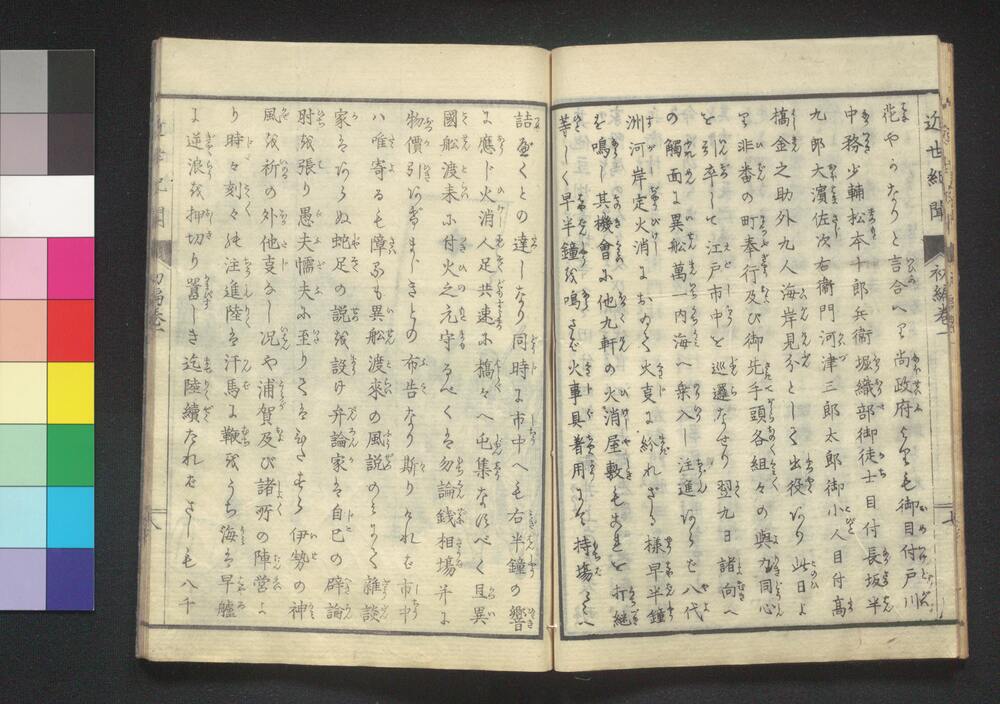 近世紀聞
初編卷一
花やかなりと言合へり尚政府よりも御目付戸川
中務少輔松本十郎兵衞堀織部御徒士目付長坂半
九郎大濱佐次右衞門河津三郎太郎御小人目付髙
橋金之助外九人海岸見分として出役あり此日よ
り非番の町奉行及び御先手頭各組々の與力同心
を引卒して江戸市中を巡邏なせり翌九日諸向へ
の觸面に異船萬一内海へ乗入し注進あらバ八代
洲河岸定火消において火㕝に紛れざる様早半鐘
を鳴し其機會に他九軒の火消屋敷も
等しく早半鐘を鳴さバ火事具着用にて持場々々へ
詰べくとの達しなり同時に市中へも右半鐘の響
に應じ火消人足共速に橋々へ屯集なすべく且異
國舩渡来に付火之元守るべくは勿論錢相場并に
物價引あげまじきとの布告なり斯りければ市中
ハ唯寄るも障るも異舩渡來の風説のミにて雜談
家はあらぬ蛇足の説を設け弁論家は自己の辟論
肘を張り愚夫懦夫に至りては伊勢の神
風を祈の外他㕝なし况や浦賀及び諸所の陣営よ
り時々刻々の注進陸は汗馬に鞭をうち海は早艫
に逆浪を押切り罵しき迄陸續たれバさしも八千